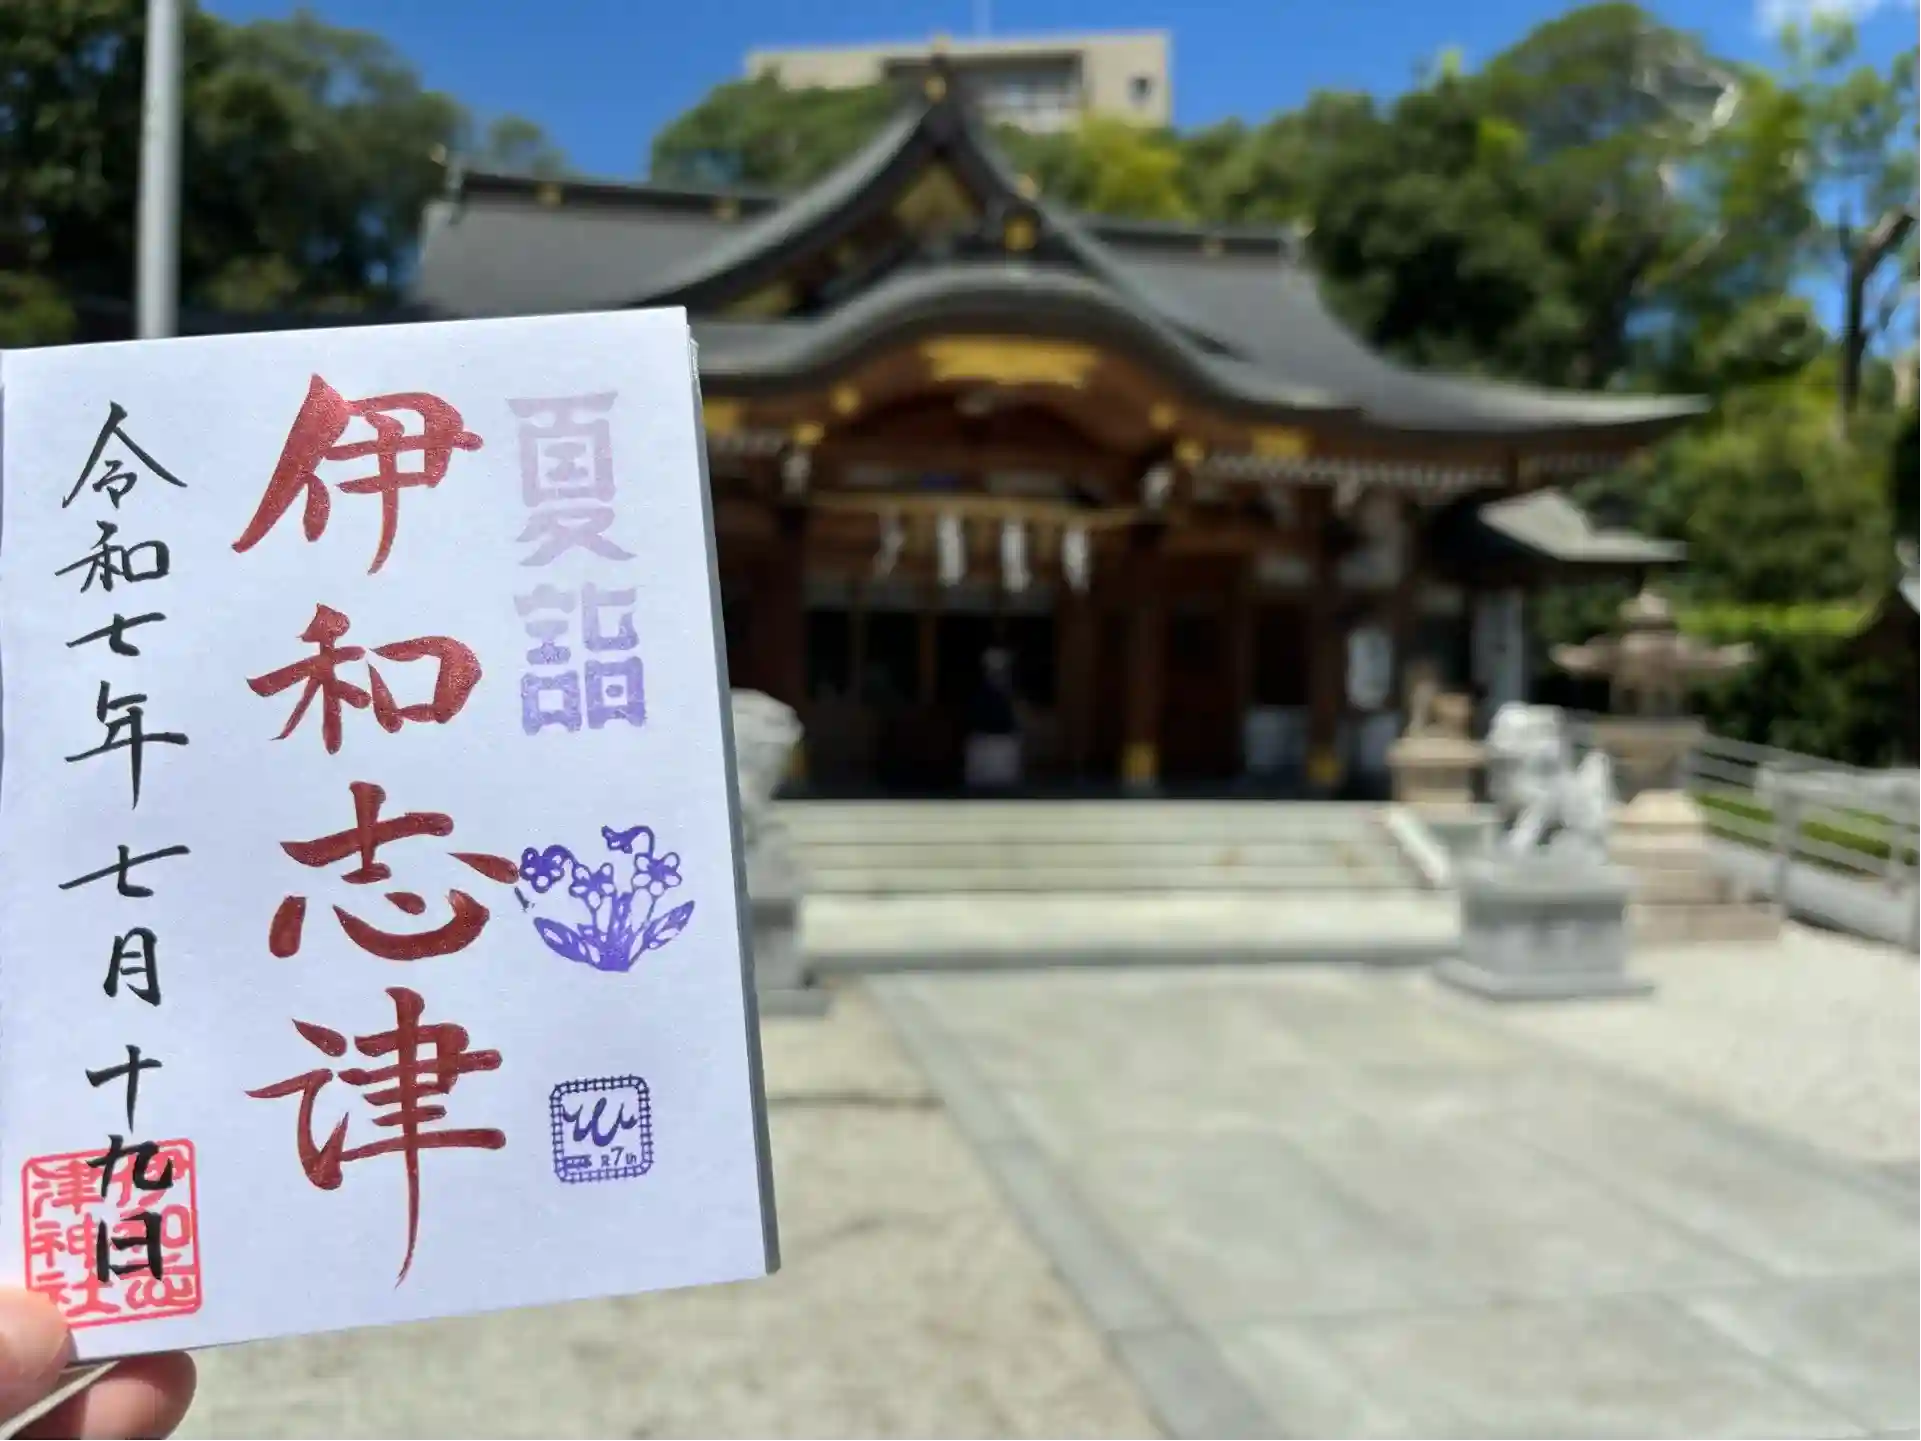 夏詣
伊和志津
令和七年七月十九日
伊和志
津神社